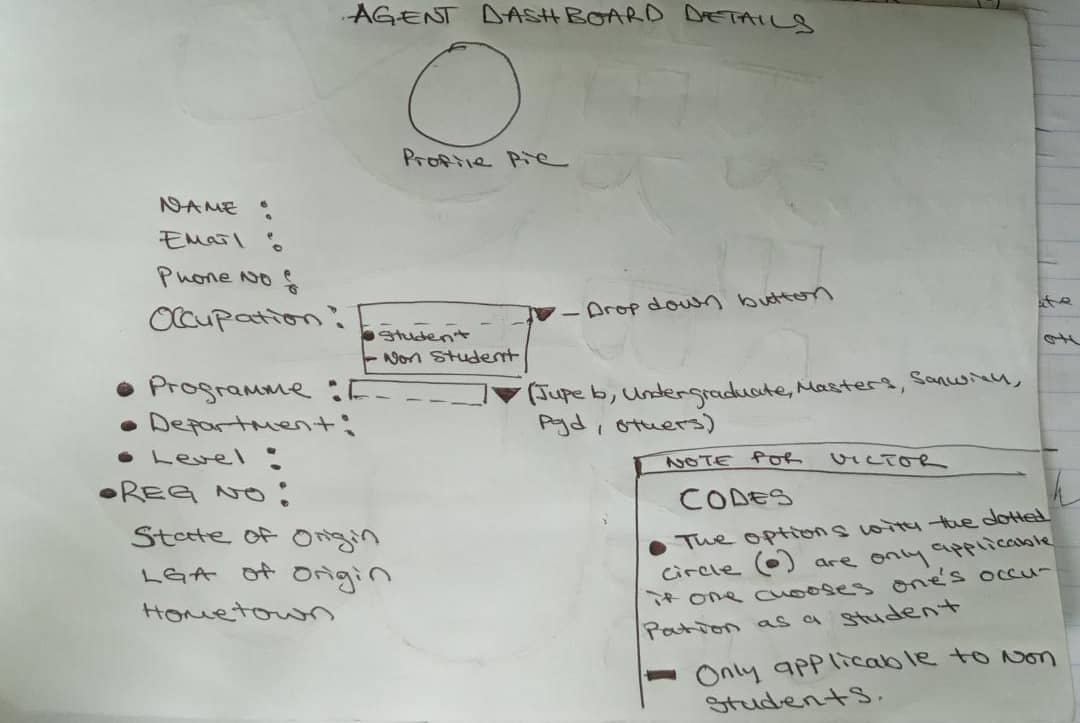 AGENT DASHBOARD DETAILS
Profile Pic
NAME :
Email :
Phone No :
Occupation : - Drop down button
• Student
- Non Student
• Programme : (Jupeb, Undergraduate, Masters, Sanwich,
Pgd, others)
• Department :
• Level :
• REG NO :
State of Origin
LGA of Origin
Hometown
NOTE FOR VICTOR
CODES
• The options with the dotted
circle (•) are only applicable
if one chooses one's occu-
pation as a student
- Only applicable to Non
Students.